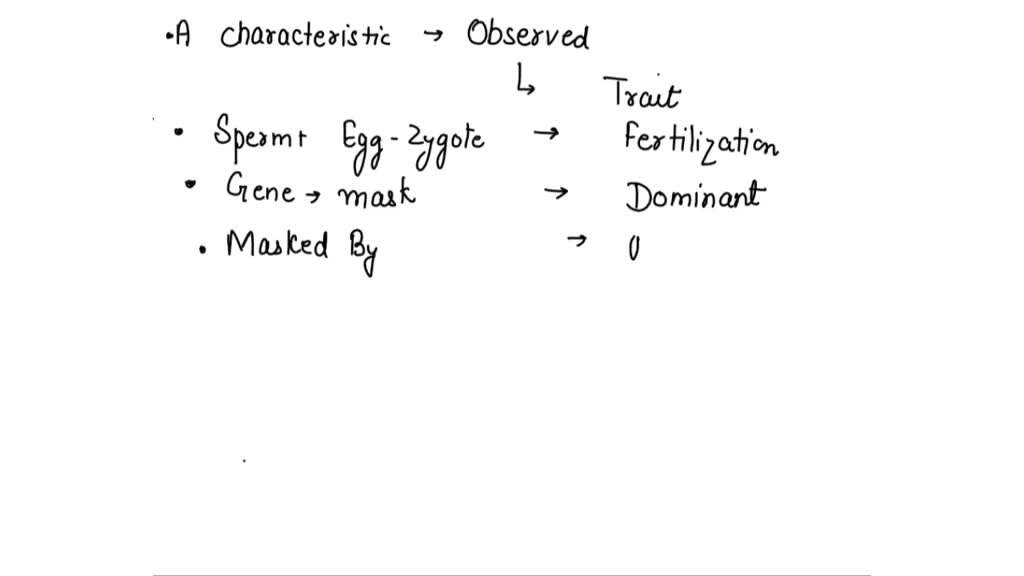 •A characteristic → Observed
↳ Trait
• Sperm+ Egg - Zygote → Fertilization
• Gene → mask → Dominant
• Masked By →